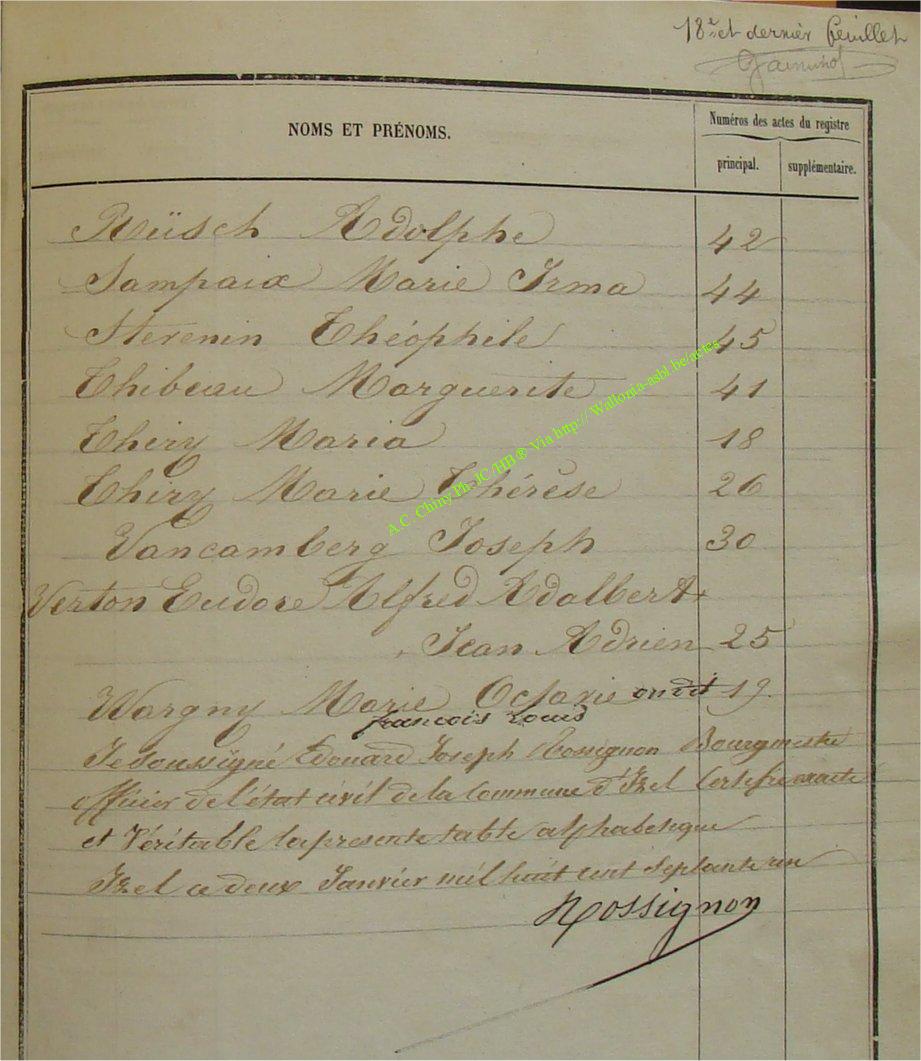 18e et dernier feuillet
NOMS ET PRÉNOMS.
Numéros des actes du registre
principal.
supplémentaire.
Rüsch Adolphe 42
Sampaix Marie Irma 44
Stevenin Théophile 45
Thibeau Marguerite 41
Thiry Maria 18
Thiry Marie Thérèse 26
Vancamberg Joseph 30
Verton Eudore Alfred Adalbert
Jean Adrien 25
Wargny Marie Octavie on dit 19.
francois Louis
Je soussigné Edouard Joseph Rossignon Bourgmestre
officier de l'état civil de la Commune d'Izel Certifie exacte
et Véritable la presente table alphabetique
Izel ce deux Janvier mil huit cent Septante un
Rossignon
A.C. Chiny Ph JC/HB® Via http://Wallonia-asbl.be/actes